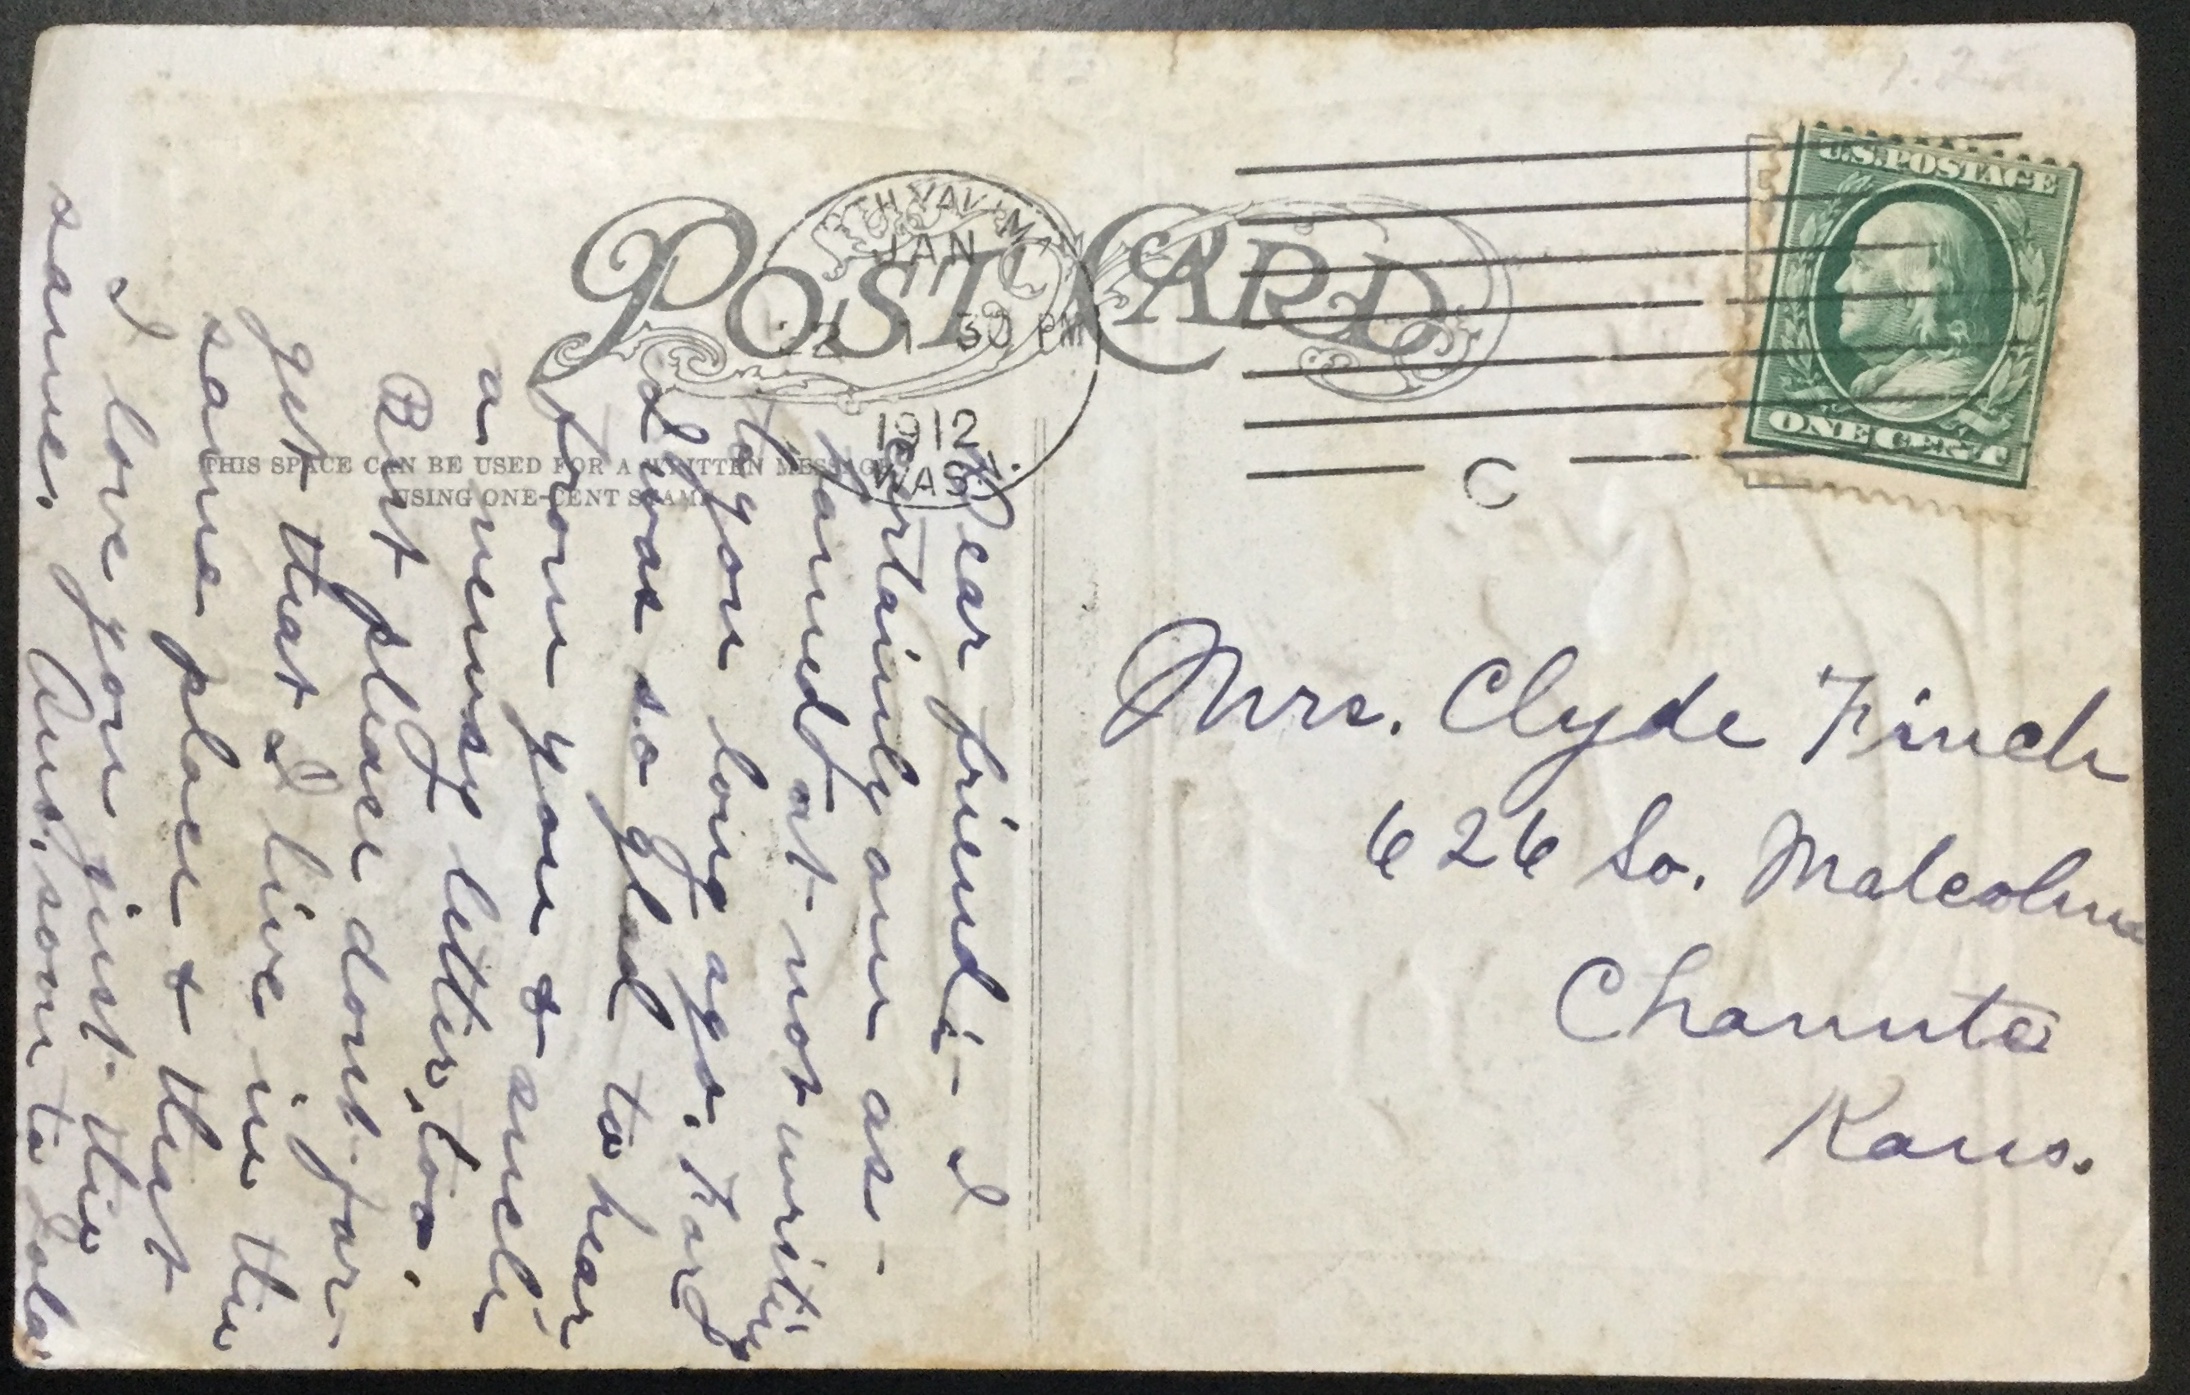 1.25
POST CARD
NORTH YAKIMA
JAN
22 1 30 PM
1912
WASH.
C
U.S. POSTAGE
ONE CENT
THIS SPACE CAN BE USED FOR A WRITTEN MESSAGE
USING ONE-CENT STAMP
Dear friend:- I
certainly am as-
hamed at not writing
to you long ago.
I was so glad to hear
from you & such
a newsy letter, too.
But please dont for-
get that I live in the
same place & that
I love you just the
same. Ans. soon to Zola
Mrs. Clyde Finch
626 So. Malcolm
Chanute
Kans.